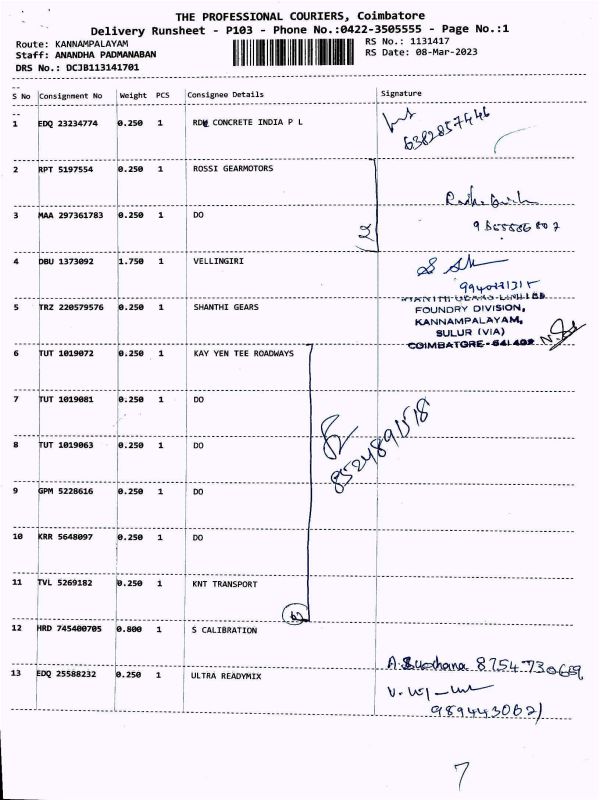 THE PROFESSIONAL COURIERS, Coimbatore
Delivery Runsheet - P103 - Phone No.:0422-3505555 - Page No.:1
Route: KANNAMPALAYAM
RS No.: 1131417
Staff: ANANDHA PADMANABAN
RS Date: 08-Mar-2023
DRS No.: DCJB113141701
S No Consignment No Weight PCS Consignee Details Signature
1 EDQ 23234774 0.250 1 RDW CONCRETE INDIA P L
6382857446
2 RPT 5197554 0.250 1 ROSSI GEARMOTORS
3 MAA 297361783 0.250 1 DO
2
4 DBU 1373092 1.750 1 VELLINGIRI
5 TRZ 220579576 0.250 1 SHANTHI GEARS
SHANTHI GEARS LIMITED
FOUNDRY DIVISION,
KANNAMPALAYAM,
SULUR (VIA)
COIMBATORE - 641 402
6 TUT 1019072 0.250 1 KAY YEN TEE ROADWAYS
7 TUT 1019081 0.250 1 DO
8 TUT 1019063 0.250 1 DO
8524891518
9 GPM 5228616 0.250 1 DO
10 KRR 5648097 0.250 1 DO
11 TVL 5269182 0.250 1 KNT TRANSPORT
12 HRD 745400705 0.800 1 S CALIBRATION
A. Suchana 8754730669
13 EDQ 25588232 0.250 1 ULTRA READYMIX
9894430621
7